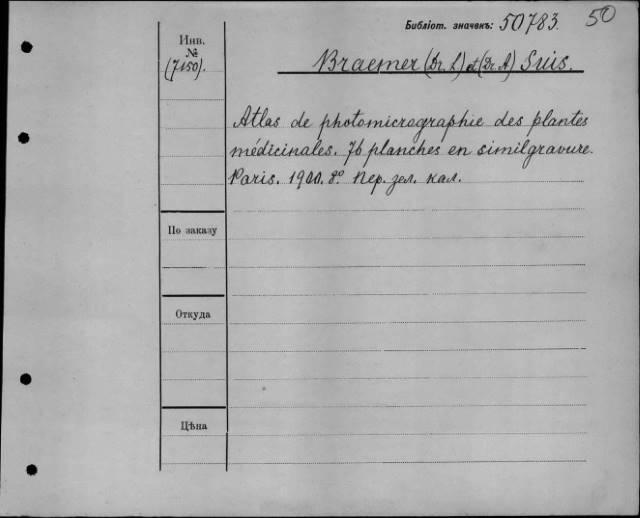 Библіот. значекъ: 50783. 50
Инв.
№
(7150).
Braemer (Dr. L) et (Dr. A) Suis.
Atlas de photomicrographie des plantes
médicinales. 76 planches en similgravure.
Paris. 1900. 8º Пер. зел. кал.
По заказу
Откуда
Цѣна